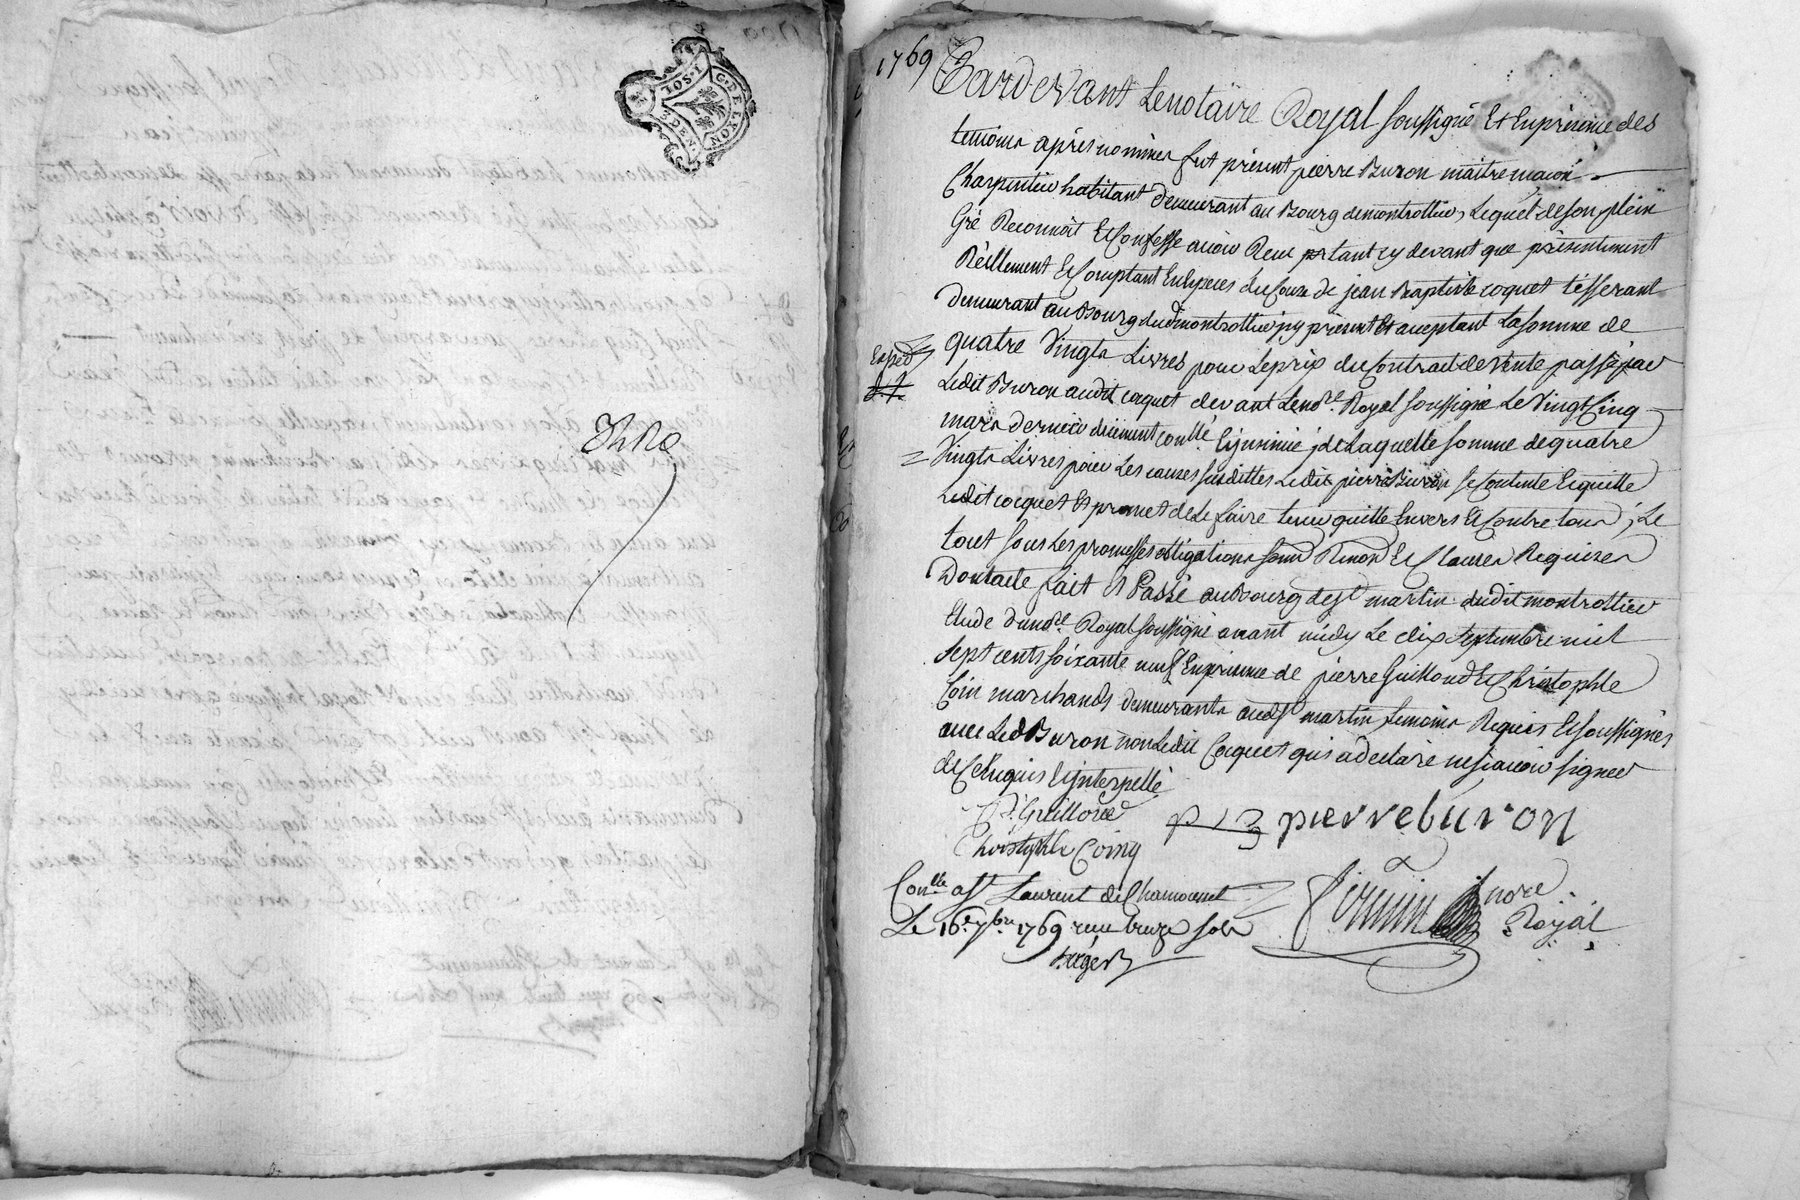 G. DE LYON
10 S. 1
3 DEN
1769
Pardevant Le notaire Royal soussigné Et En presence des
temoins après nommés fut présent pierre Buron maitre maçon
Charpentier habitant demeurant au Bourg de montrottier, Lequel de son plein
Gré Reconnoit Et Confesse avoir Receu ptant cy devant que présentement
Réellement Et Comptant En Especes du Cours de jean Baptiste coquet tisserant
demeurant au Bourg dudit montrottier jcy présent Et aceptant La somme de
quatre Vingts Livres pour Le prix du Contrait de Vente passé par
Ledit Buron audit coquet devant Le no.re Royal soussigné Le Vingt Cinq
mars dernier duement conllé Et jnsinué ; de Laquelle somme de quatre
Vingts Livres pour Les causes susdittes Ledit pierre Buron se Contente Et quitte
Ledit cocquet Et promet de Le faire tenir quitte Envers Et Contre tous ; Le
tout sous Les promesses obligations soum Renon Et Clauses Requises
Dont acte fait Et Passé au Bourg de st martin dudit montrottier
Etude du no.re Royal soussigné avant midy Le dix septembre mil
sept cents soixante neuf En présence de pierre Guilloud Et Christophle
Coin marchands demeurants audt st martin temoins Requis Et soussignés
avec Led Buron non Ledit Cocquet qui a declaré ne sçavoir signer
de ce Enquis Et jnterpellé
P. Guilloud
pierre buron
Christophle Coing
Conllé a st Laurent de Chamousset
Le 16e 7bre 1769 receu treize sols
nore
Royal